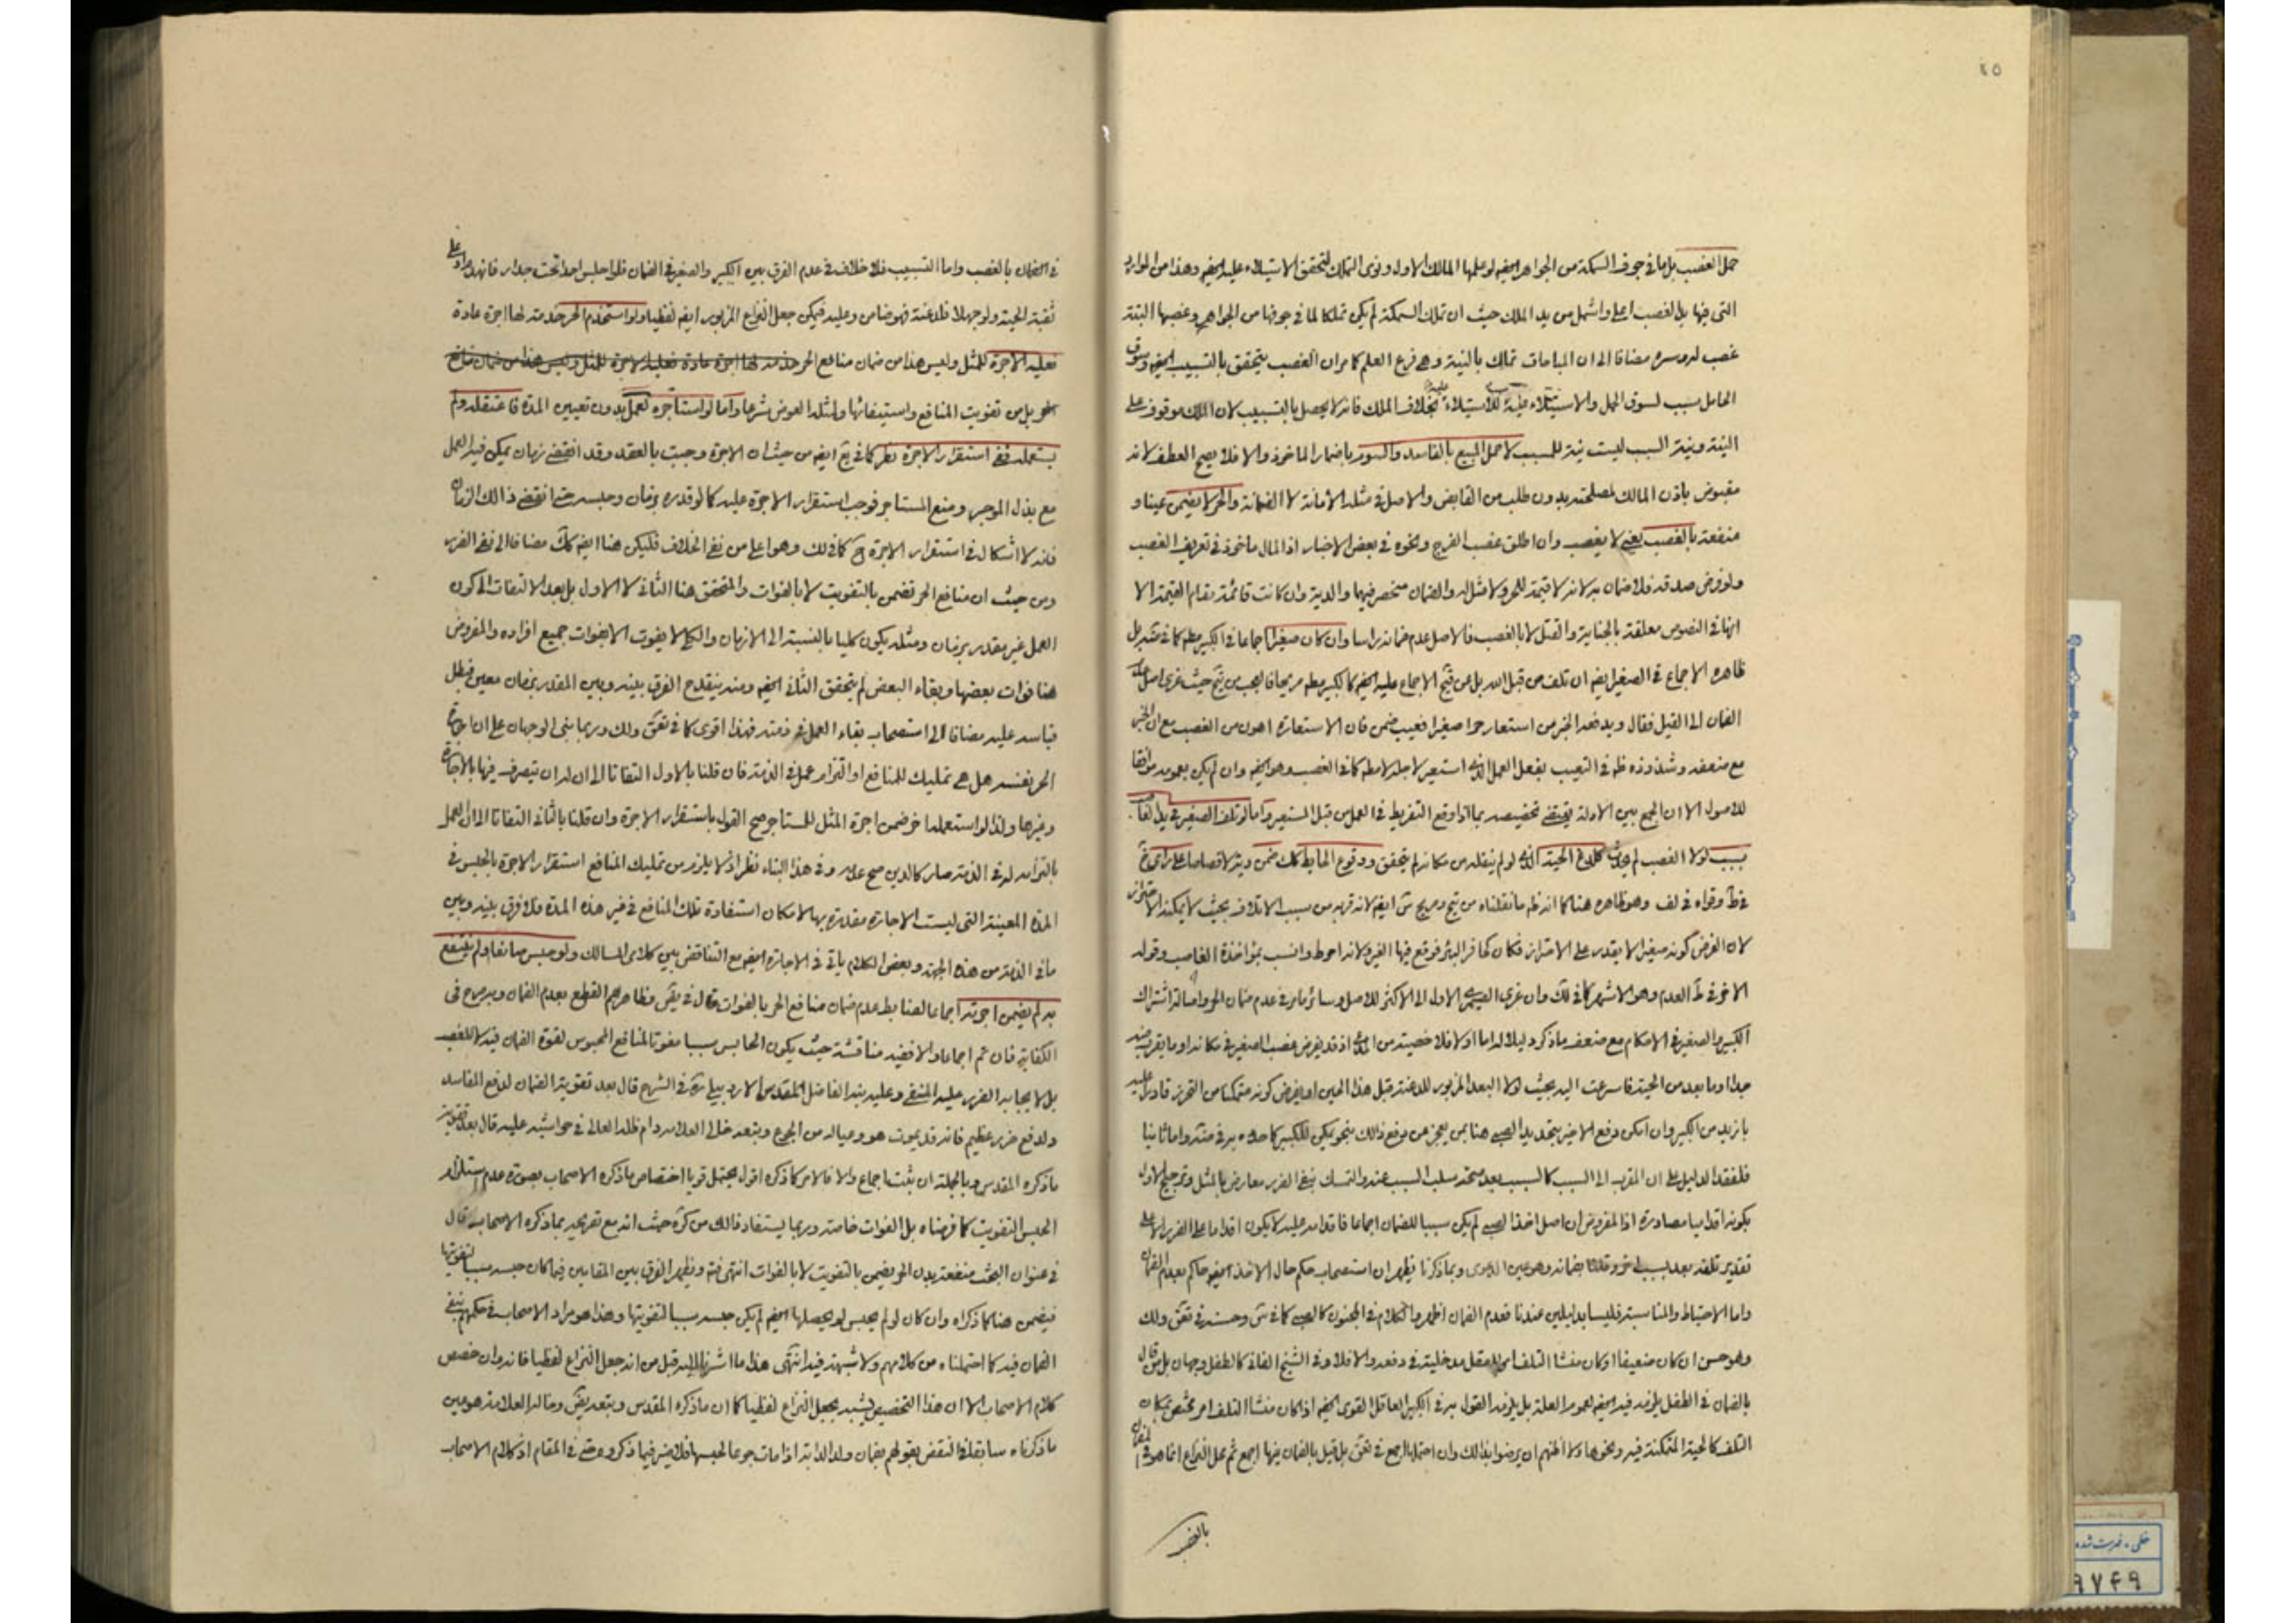 ٤٥
حمل الغصب بل ما في جوف السمكة من الجواهر ايضا لو علمها المالك الاول ونوى التملك لتحقق الاستيلاء عليه ايضا وهذا من الموارد
التي فيها يد الغصب اعلى واشمل من يد الملك حيث ان تملك السمكة لم يكن تملكا لما في جوفها من الجواهر وغصبها البتة
غصب له مضافا الى ان المباحات تملك بالنية وهي فرع العلم كما مر ان الغصب يتحقق بالتسبيب ايضا وسوق
الحامل سبب لسوق الحمل والاستيلاء عليه بخلاف الملك فانه لا يحصل بالتسبيب لان الملك موقوف على
النية ونية السبب ليست نية للمسبب لا حمل المبيع بالفاسد والسوم باضمار الماخوذ والا فلا يصح العطف لانه
مقبوض باذن المالك لمصلحته بدون طلب من القابض والاصل في مثله الامانة لا الضمانة والحر لا يضمن عينا و
منفعة بالغصب يعني لا يغصب وان اطلق غصب الفرج ونحوه في بعض الاخبار اذ المال ماخوذ في تعريف الغصب
ولو فرض صدقه فلا ضمان به لانه لا قيمة للحر ولا مثل له والضمان منحصر فيهما والدية وان كانت قائمة مقام القيمة الا
انها في النصوص معلقة بالجناية والقتل لا بالغصب فالاصل عدم ضمانه راسا وان كان صغيرا اجماعا في الكبير مطلقا كما في
ظاهره الاجماع في الصغير ايضا ان تلف من قبل الله بل عن الاجماع عليه ايضا كالكبير
الضمان الى القيل فقال ويدفعه الخبر من استعار حرا صغيرا فعيب ضمن فان الاستعارة اهون من الغصب مع ان الخبر
مع ضعفه وشذوذه ظاهر في التعيب بفعل العمل الذي استعير لاجله لا مطلقا كما في الغصب وهو ايضا وان لم يكن بعمومه موافقا
للاصول الا ان الجمع بين الادلة يقتضي تخصيصه بما اذا وقع التفريط في العمل من قبل المستعير واما لو تلف الصغير في يد الغاصب
بسبب لولا الغصب لم يحدث كلدغ الحية الذي لو لم ينقله من مكانه لم يتحقق ووقوع الحايط كك ضمن ديته لا قصاصا على راى
وقواه في لف وهو ظاهره هنا كما انه ظاهر ما نقلناه من ايضا لانه قربه من سبب الاتلاف بحيث لا يمكنه الاحتراز
لان الفرض كونه صغيرا لا يقدر على الاحتراز فكان كحافر البئر فوقع فيها الغير ولانه احوط وانسب بمؤاخذة الغاصب وقوله
الاخر في ط العدم وهو الاشهر كما في لك وان عزي الاول الى الاكثر للاصل وسائر ما مر في عدم ضمان الحر واصالة اشتراك
الكبير والصغير في الاحكام مع ضعف ما ذكر دليلا له اما اولا فلا خصية من اذ قد يفرض غصب الصغير في مكانه او ما يقرب منه
جدا او ما بعد من الحية فاسرعت اليه بحيث لولا البعد المزبور للدغته قبل هذا الحين او يفرض كونه متمكنا من التحرز قادرا عليه
بازيد من الكبير وان امكن دفع الاخير بتحديد الصبي هنا بمن يعجز عن دفع ذلك بنحو يمكن للكبير كما واما ثانيا
فلفقد الدليل على ان المقرب الى السبب كالسبب بعد صحة سلب السبب عنه والتمسك بنفي الضرر معارض بالمثل وترجيح الاول
بكونه اقداما مصادرة اذ المفروض ان اصل اخذ الصبي لم يكن سببا للضمان اجماعا فاقدامه عليه لا يكون اقداما على الضرر الا على
تقدير تلفه بعد بسبب اخر وقلنا بضمانه وهو عين الدعوى وبما ذكرنا يظهر ان استصحاب حكم حال الاخذ ايضا حاكم بعدم الضمان
واما الاحتياط والمناسبة فليسا بدليلين عندنا فعدم الضمان اظهر والكلام في المجنون كالصبي كما في وحسنه في ولك
وهو حسن ان كان ضعيفا او كان منشأ التلف امر للعقل مدخلية في دفعه والا فلا وفي الشيخ الفاني كالطفل وجهان بل من قال
بالضمان في الطفل يلزمه فيه ايضا لعموم العلة بل يلزمه القول به في الكبير العاقل القوي ايضا اذا كان منشأ التلف امر يختص بمكان
التلف كالحية المتمكنة فيه ونحوها ولا اظنهم ان يرضوا بذلك وان بل قيل بالضمان فيها اجمع ثم محل النزاع انما هو في الضمان
بالغصب
في الضمان بالغصب واما التسبيب فلا خلاف في عدم الفرق بين الكبير والصغير في الضمان فلو اجلس احدا تحت جدار فانهدم او على
ثقبة الحية ولو جهلا فلدغته فهو ضامن وعليه فيمكن جعل النزاع المزبور ايضا لفظيا ولو استخدم الحر خدمة لها اجرة عادة
فعليه الاجرة للمثل وليس هذا من ضمان منافع الحر خدمة لها اجرة عادة فعليه الاجرة للمثل وليس هذا من ضمان منافع
الحر بل من تفويت المنافع واستيفائها ولمثله العوض شرعا واما لو استاجره لعمل بدون تعيين المدة فاعتقله ولم
يستعمله ففي استقرار الاجرة نظر كما في ايضا من حيث ان الاجرة وجبت بالعقد وقد انقضى زمان يمكن فيه العمل
مع بذل الموجر ومنع المستاجر فوجب استقرار الاجرة عليه كما لو قدره بزمان وحبسه حتى انقضى ذلك الزمان
فانه لا اشكال في استقرار الاجرة ح كما في لك وهو اعلى من نفي الخلاف فليكن هنا ايضا كك مضافا الى نفي الضرر
ومن حيث ان منافع الحر تضمن بالتفويت لا بالفوات والمتحقق هنا الثاني لا الاول بل بعد الالتفات الى كون
العمل غير مقدر بزمان ومثله يكون كليا بالنسبة الى الازمان والكلي لا يفوت الا بفوات جميع افراده والمفروض
هنا فوات بعضها وبقاء البعض لم يتحقق الثاني ايضا ومنه ينقدح الفرق بينه وبين المقدر بزمان معين فبطل
قياسه عليه مضافا الى استصحاب بقاء العمل في ذمته فهذا اقوى كما في ولك وربما بني الوجهان على ان اجارة
الحر نفسه هل هي تمليك للمنافع او التزام عمل في الذمة فان قلنا بالاول التفاتا الى ان له ان يتصرف فيها بالاجارة
وغيرها ولذا لو استعمله اخر ضمن اجرة المثل للمستاجر صح القول باستقرار الاجرة وان قلنا بالثاني التفاتا الى ان العمل
بالتزامه له في الذمة صار كالدين صح عدمه وفي هذا البناء نظر اذ لا يلزم من تمليك المنافع استقرار الاجرة بالحبس في
المدة المعينة التي ليست الاجارة مقدرة بها لامكان استفادة تلك المنافع في غير هذه المدة فلا فرق بينه وبين
ما في الذمة من هذه الجهة وبعض الكلام ياتي في الاجارة ايضا مع التناقض بين كلامي المسالك ولو حبس صانعا ولم ينتفع
به لم يضمن اجرته اجماعا لضابط عدم ضمان منافع الحر بالفوات قال في فظاهرهم القطع بعدم الضمان وبه صرح في
الكفاية فان تم اجماعا والا ففيه مناقشة حيث يكون الحابس سببا مفوتا لمنافع المحبوس لقوة الضمان فيه لا للغصب
بل لايجابه الضرر عليه المنفي وعليه نبه الفاضل المقدس الاردبيلي ره في الشرح قال بعد تقوية الضمان لدفع المفاسد
ولدفع ضرر عظيم فانه قد يموت هو وعياله من الجوع وتبعه خالي العلامة دام ظله العالي في حواشيه عليه قال بعد تقوية
ما ذكره المقدس وبالجملة ان ثبت اجماع والا فالامر كما ذكره اقول يحتمل قويا اختصاص ما ذكره الاصحاب بصورة عدم استلزام
الحبس التفويت كما فرضناه بل الفوات خاصة وربما يستفاد ذلك من كره حيث انه مع تصريحه بما ذكره الاصحاب قال
في عنوان البحث منفعة بدن الحر يضمن بالتفويت لا بالفوات انتهى فتم ويظهر الفرق بين المقامين فيما كان حبسه سببا لتفويتها
فيضمن هنا كما ذكراه وان كان لو لم يحبس لم يحصلها ايضا لم يكن حبسه سببا لتفويتها وهذا هو مراد الاصحاب في حكمهم بنفي
الضمان فيه كما احتملناه من كلامهم ولا شبهة فيه انتهى هذا ما اشرنا اليه قبل من انه جعل النزاع لفظيا فانه وان خصص
كلام الاصحاب الا ان هذا التخصيص يشبه بجعل النزاع لفظيا كما ان ما ذكره المقدس وتبعه وخاله العلامة هو عين
ما ذكرناه سابقا في النقض بقولهم بضمان ولد الدابة اذا مات جوعا لحبسها فلا ضير فيما ذكروه حتى في المقام اذ كلام الاصحاب
خطى . فهرست شده
٩٧٤٩